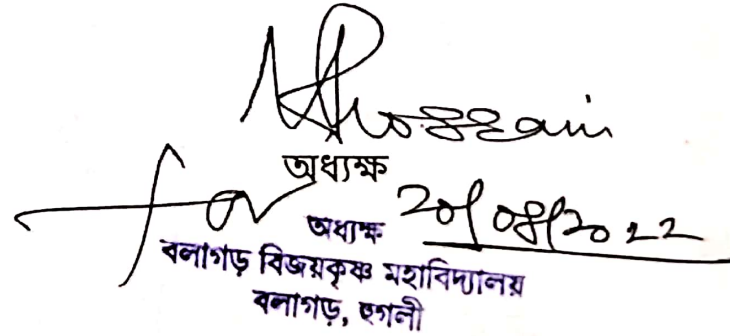 Hossain
অধ্যক্ষ
for
অধ্যক্ষ 20/08/2022
বলাগড় বিজয়কৃষ্ণ মহাবিদ্যালয়
বলাগড়, হুগলী